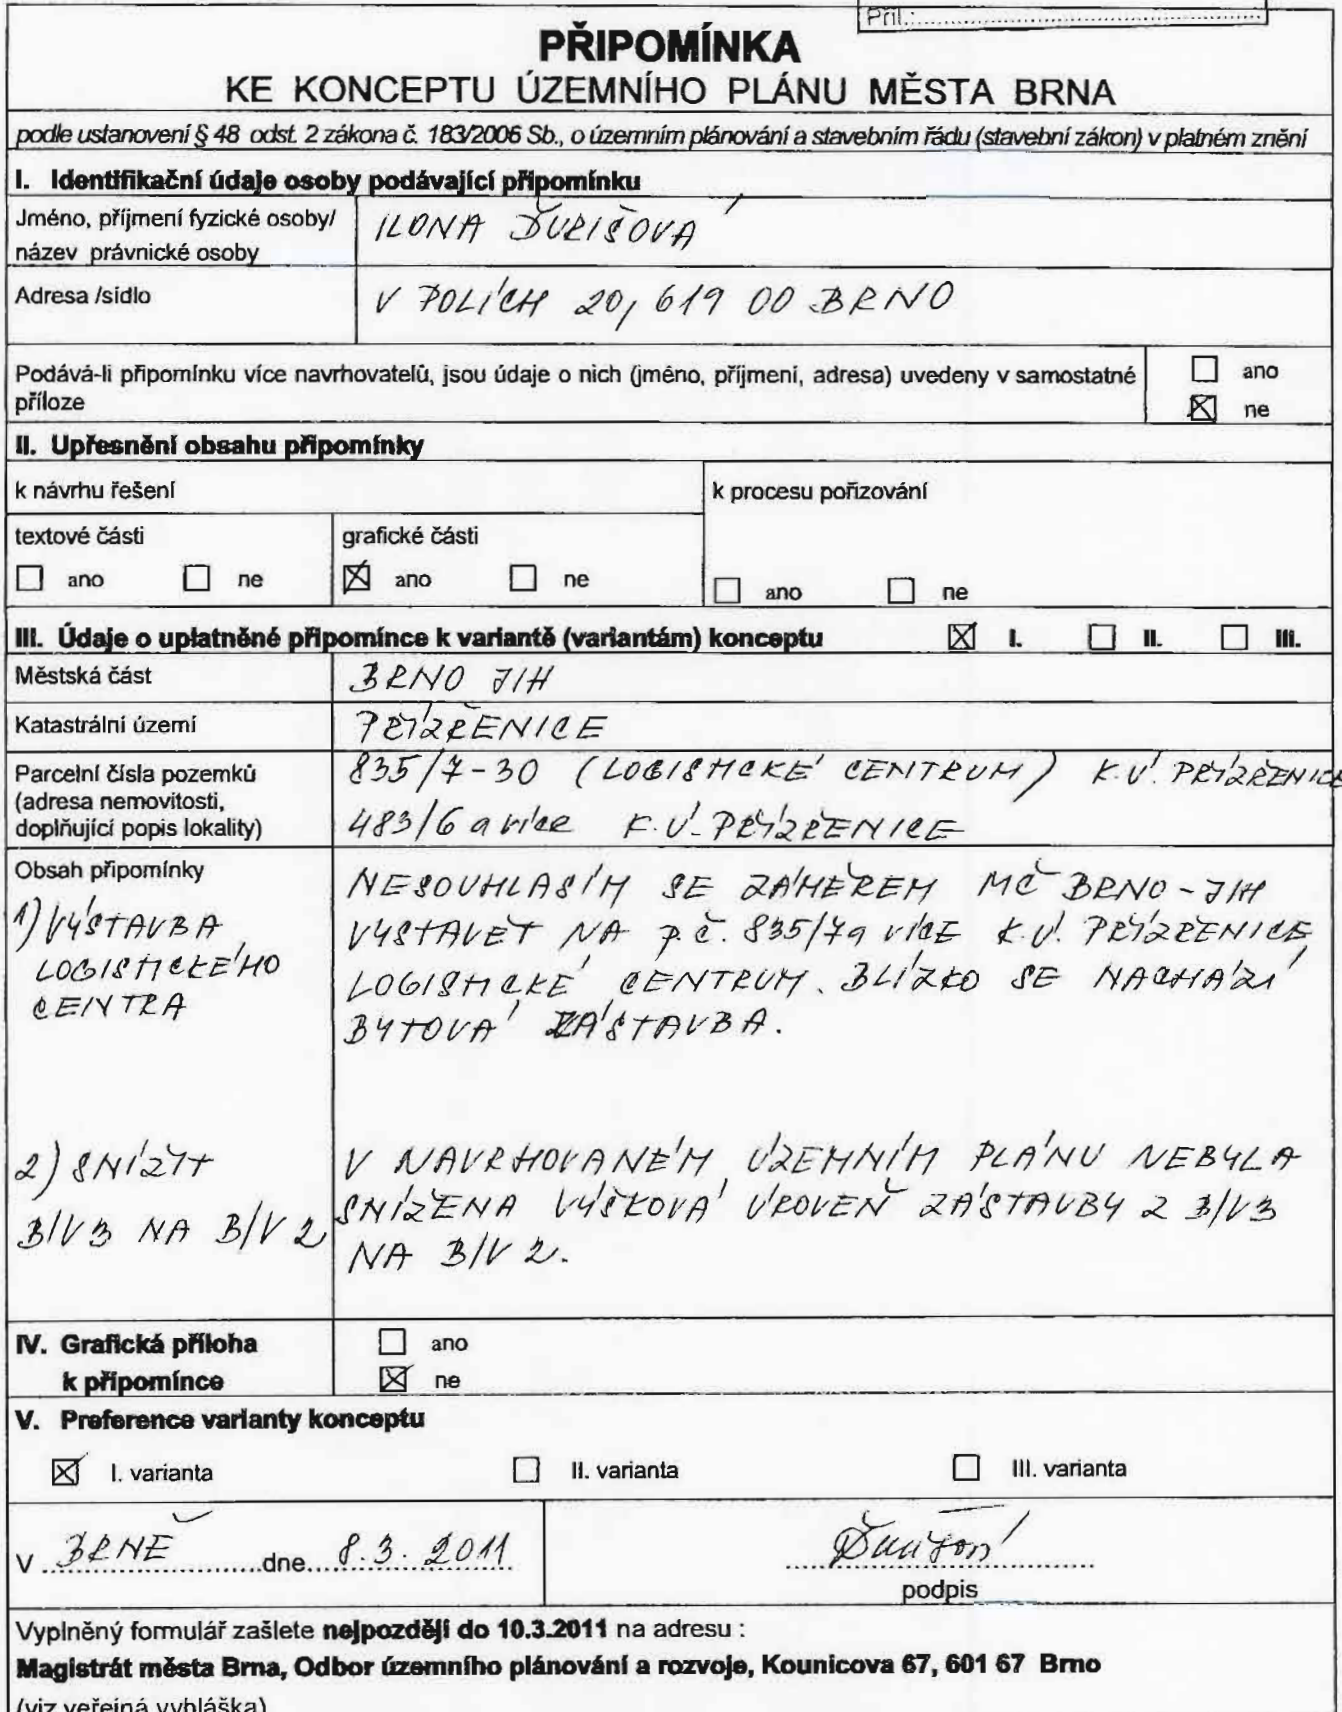 Příl.:
PŘIPOMÍNKA
KE KONCEPTU ÚZEMNÍHO PLÁNU MĚSTA BRNA
podle ustanovení § 48 odst. 2 zákona č. 183/2006 Sb., o územním plánování a stavebním řádu (stavební zákon) v platném znění
I. Identifikační údaje osoby podávající připomínku
Jméno, příjmení fyzické osoby/
název právnické osoby
ILONA ĎURIŠOVÁ
Adresa /sídlo
V POLÍCH 20, 619 00 BRNO
Podává-li připomínku více navrhovatelů, jsou údaje o nich (jméno, příjmení, adresa) uvedeny v samostatné
příloze
☐ ano
☒ ne
II. Upřesnění obsahu připomínky
k návrhu řešení
k procesu pořizování
textové části
grafické části
☐ ano ☐ ne
☒ ano ☐ ne
☐ ano ☐ ne
III. Údaje o uplatněné připomínce k variantě (variantám) konceptu ☒ I. ☐ II. ☐ III.
Městská část
BRNO JIH
Katastrální území
PŘÍZŘENICE
Parcelní čísla pozemků
(adresa nemovitosti,
doplňující popis lokality)
835/7-30 (LOGISTICKÉ CENTRUM) K.Ú. PŘÍZŘENICE
483/6 a více K.Ú. PŘÍZŘENICE
Obsah připomínky
1) VÝSTAVBA
LOGISTICKÉHO
CENTRA
NESOUHLASÍM SE ZÁMĚREM MČ BRNO-JIH
VYSTAVĚT NA p.č. 835/7 a více K.Ú. PŘÍZŘENICE
LOGISTICKÉ CENTRUM. BLÍZKO SE NACHÁZÍ
BYTOVÁ ZÁSTAVBA.
2) SNÍŽIT
B/V3 NA B/V2
V NAVRHOVANÉM ÚZEMNÍM PLÁNU NEBYLA
SNÍŽENA VÝŠKOVÁ ÚROVEŇ ZÁSTAVBY Z B/V3
NA B/V2.
IV. Grafická příloha
k připomínce
☐ ano
☒ ne
V. Preference varianty konceptu
☒ I. varianta ☐ II. varianta ☐ III. varianta
V BRNĚ dne 8.3.2011
Ďurišová
podpis
Vyplněný formulář zašlete nejpozději do 10.3.2011 na adresu :
Magistrát města Brna, Odbor územního plánování a rozvoje, Kounicova 67, 601 67 Brno
(viz veřejná vyhláška)